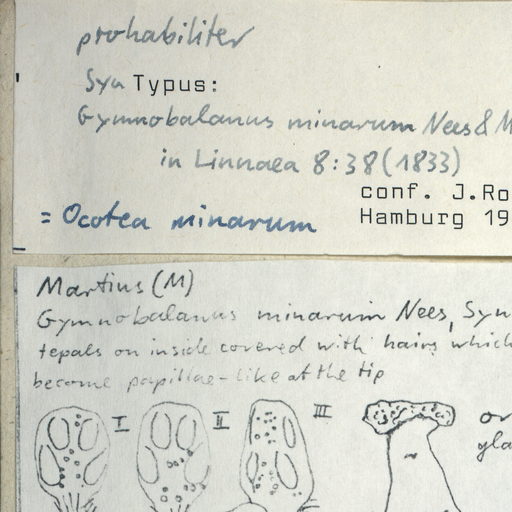 prohabiliter
Syn Typus:
Gymnobalanus minarum Nees & M
in Linnaea 8:38 (1833)
conf. J.Ro
= Ocotea minarum Hamburg 19
Martius (M)
Gymnobalanus minarum Nees, Syn
tepals on inside covered with hairs which
become papillae-like at the tip
I II III
or
gla